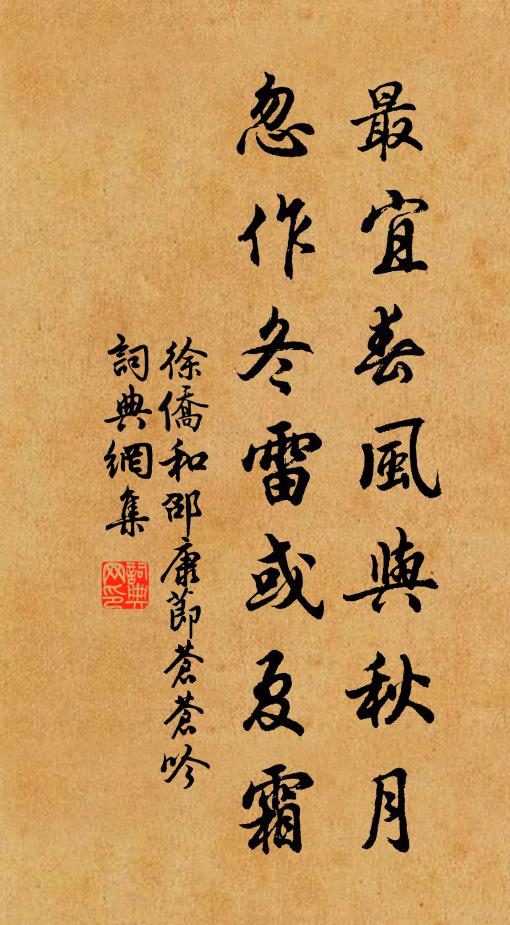 最宜春風與秋月
忽作冬雷或夏霜
徐僑和邵康節蒼蒼吟
詞典網集
詞典
网印